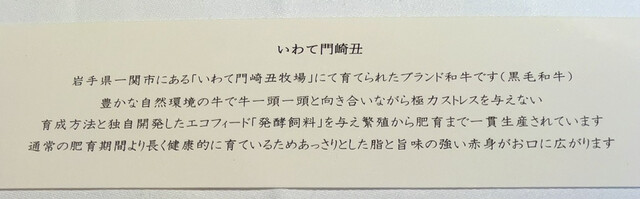 いわて門崎丑
岩手県一関市にある「いわて門崎丑牧場」にて育てられたブランド和牛です(黒毛和牛)
豊かな自然環境の牛で牛一頭一頭と向き合いながら極力ストレスを与えない
育成方法と独自開発したエコフィード「発酵飼料」を与え繁殖から肥育まで一貫生産されています
通常の肥育期間より長く健康的に育ているためあっさりとした脂と旨味の強い赤身がお口に広がります